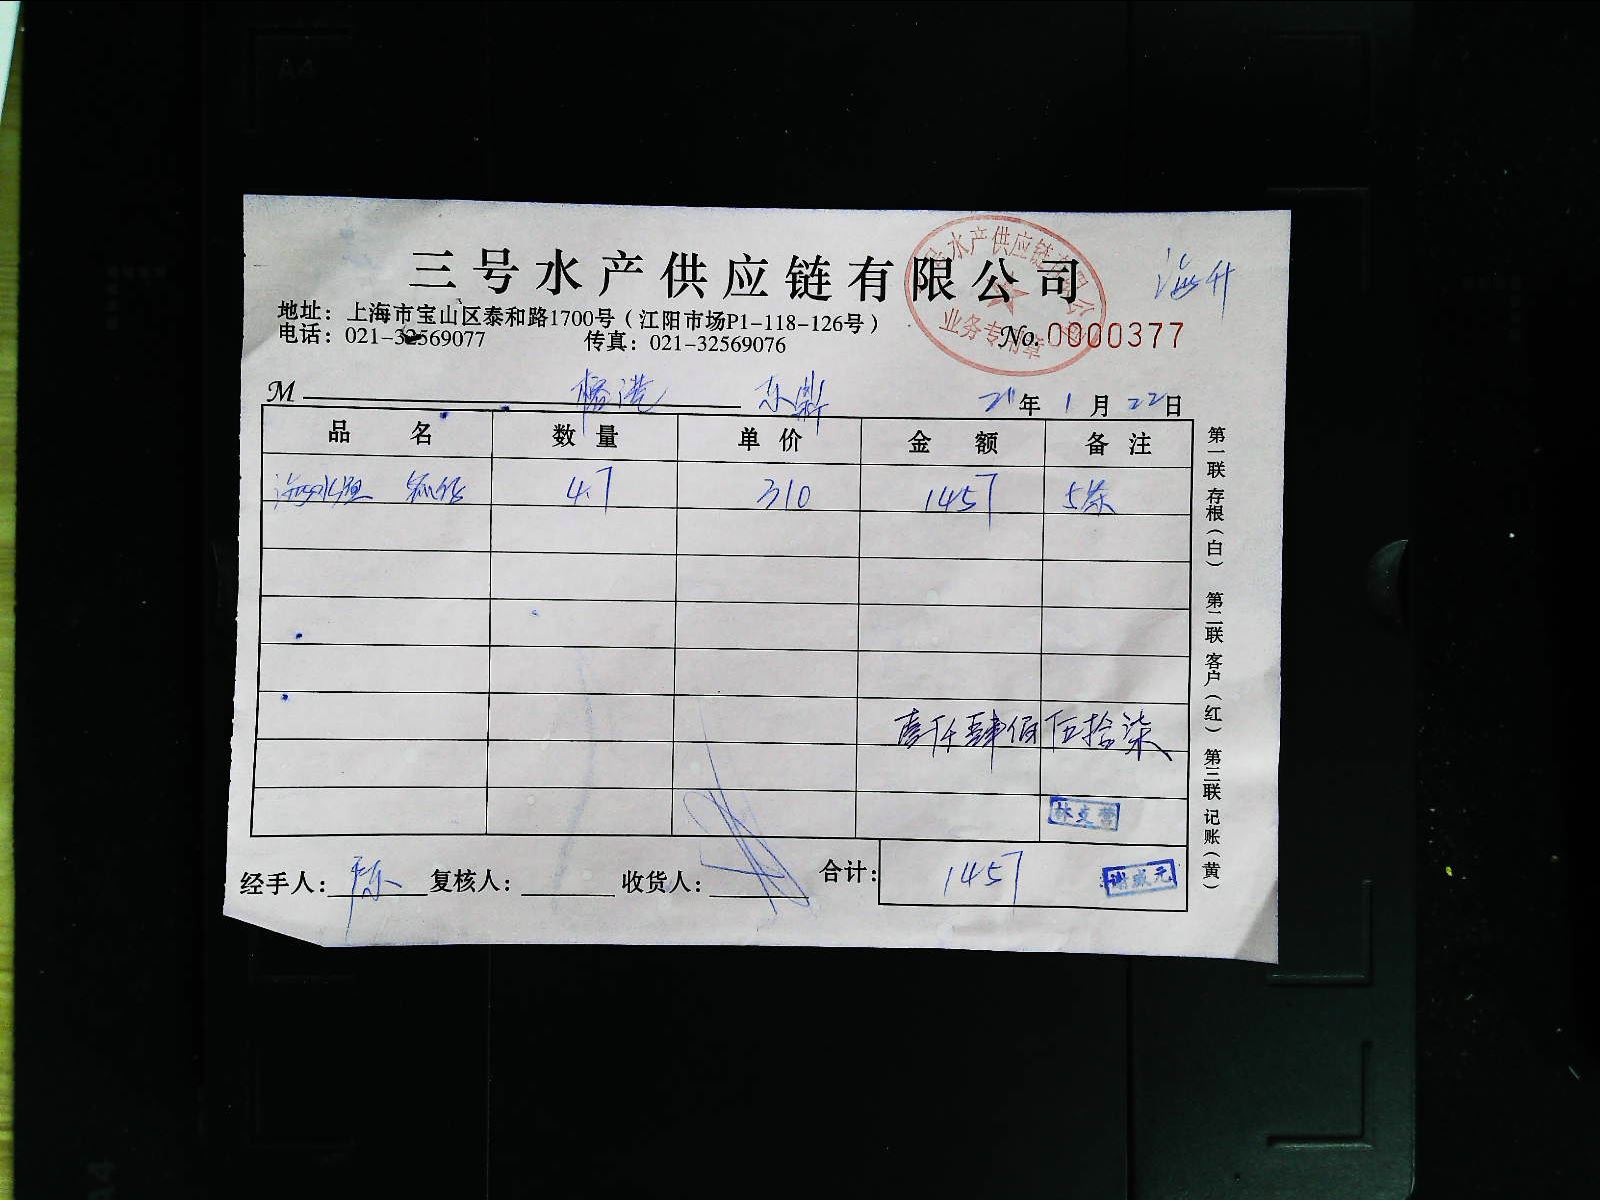 三号水产供应链有限公司
海升
地址：上海市宝山区泰和路1700号（江阳市场P1-118-126号）
电话：021-32569077 传真：021-32569076
水产供应链有限公司
业务专用章
No. 0000377
M 港 东鼎 21年1月22日
品名 数量 单价 金额 备注
海水 4.7 310 1457 5条
壹仟肆佰伍拾柒
林支营
经手人：陈 复核人： 收货人： 合计：1457
谢威元
第一联 存根（白） 第二联 客户（红） 第三联 记账（黄）
A4
A4